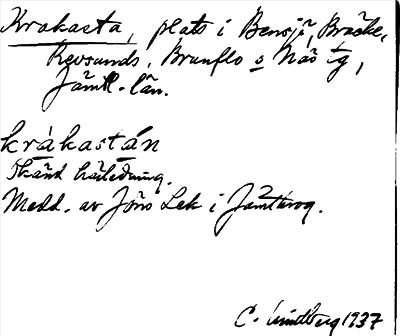 Krakasta, plats i Bensjö, Bräcke,
Revsunds, Brunflo o Näs tg,
Jämtl. län.
kråkastán
Okänd härledning.
Medd. av Jöns Lek i Jämtkrog.
C. Lindberg 1937